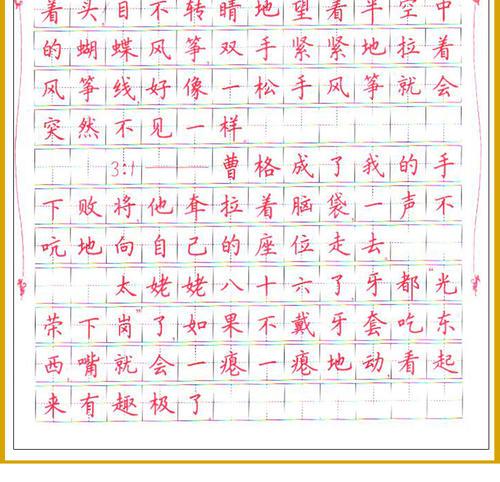 着头目不转睛地望着半空中
的蝴蝶风筝,双手紧紧地拉着
风筝线,好像一松手风筝就会
突然不见一样。
3:1——曹格成了我的手
下败将,他耷拉着脑袋,一声不
吭地向自己的座位走去。
太姥姥八十六了,牙都“光
荣下岗”了,如果不戴牙套吃东
西,嘴就会一瘪一瘪地动,看起
来有趣极了。